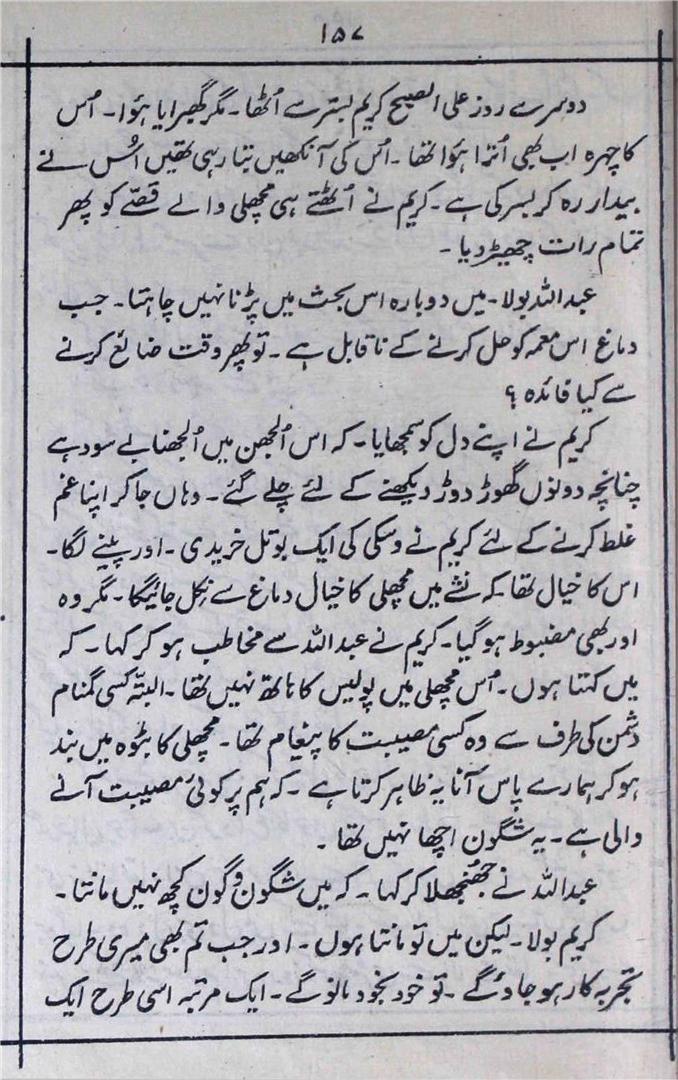 ۱۵۷
دوسرے روز علی الصبح کریم بستر سے اُٹھا۔ مگر گھبرایا ہوا۔ اُس
کا چہرہ اب بھی اُترا ہوا تھا۔ اُس کی آنکھیں بتا رہی تھیں اُس نے
بیدار رہ کر بسر کی ہے۔ کریم نے اُٹھتے ہی مچھلی والے قصّے کو پھر
تمام رات چھیڑ دیا۔
عبداللہ بولا۔ میں دوبارہ اس بحث میں پڑنا نہیں چاہتا۔ جب
دماغ اس معمہ کو حل کرنے کے ناقابل ہے۔ تو پھر وقت ضائع کرنے
سے کیا فائدہ ؟
کریم نے اپنے دل کو سمجھایا۔ کہ اس اُلجھن میں اُلجھنا بے سود ہے
چنانچہ دونوں گھوڑ دوڑ دیکھنے کے لئے چلے گئے۔ وہاں جا کر اپنا غم
غلط کرنے کے لئے کریم نے وسکی کی ایک بوتل خریدی۔ اور پینے لگا۔
اس کا خیال تھا۔ کہ نشے میں مچھلی کا خیال دماغ سے نکل جائیگا۔ مگر وہ
اور بھی مضبوط ہو گیا۔ کریم نے عبداللہ سے مخاطب ہو کر کہا۔ کہ
میں کہتا ہوں۔ اُس مچھلی میں پولیس کا ہاتھ نہیں تھا۔ البتّہ کسی گمنام
دشمن کی طرف سے وہ کسی مصیبت کا پیغام تھا۔ مچھلی کا بٹوہ میں بند
ہو کر ہمارے پاس آنا یہ ظاہر کرتا ہے۔ کہ ہم پر کوئی مصیبت آنے
والی ہے۔ یہ شگون اچھا نہیں تھا۔
عبداللہ نے جھنجھلا کر کہا۔ کہ میں شگون وگون کچھ نہیں مانتا۔
کریم بولا۔ لیکن میں تو مانتا ہوں۔ اور جب تم بھی میری طرح
تجربہ کار ہو جاؤ گے۔ تو خود بخود مانو گے۔ ایک مرتبہ اسی طرح ایک